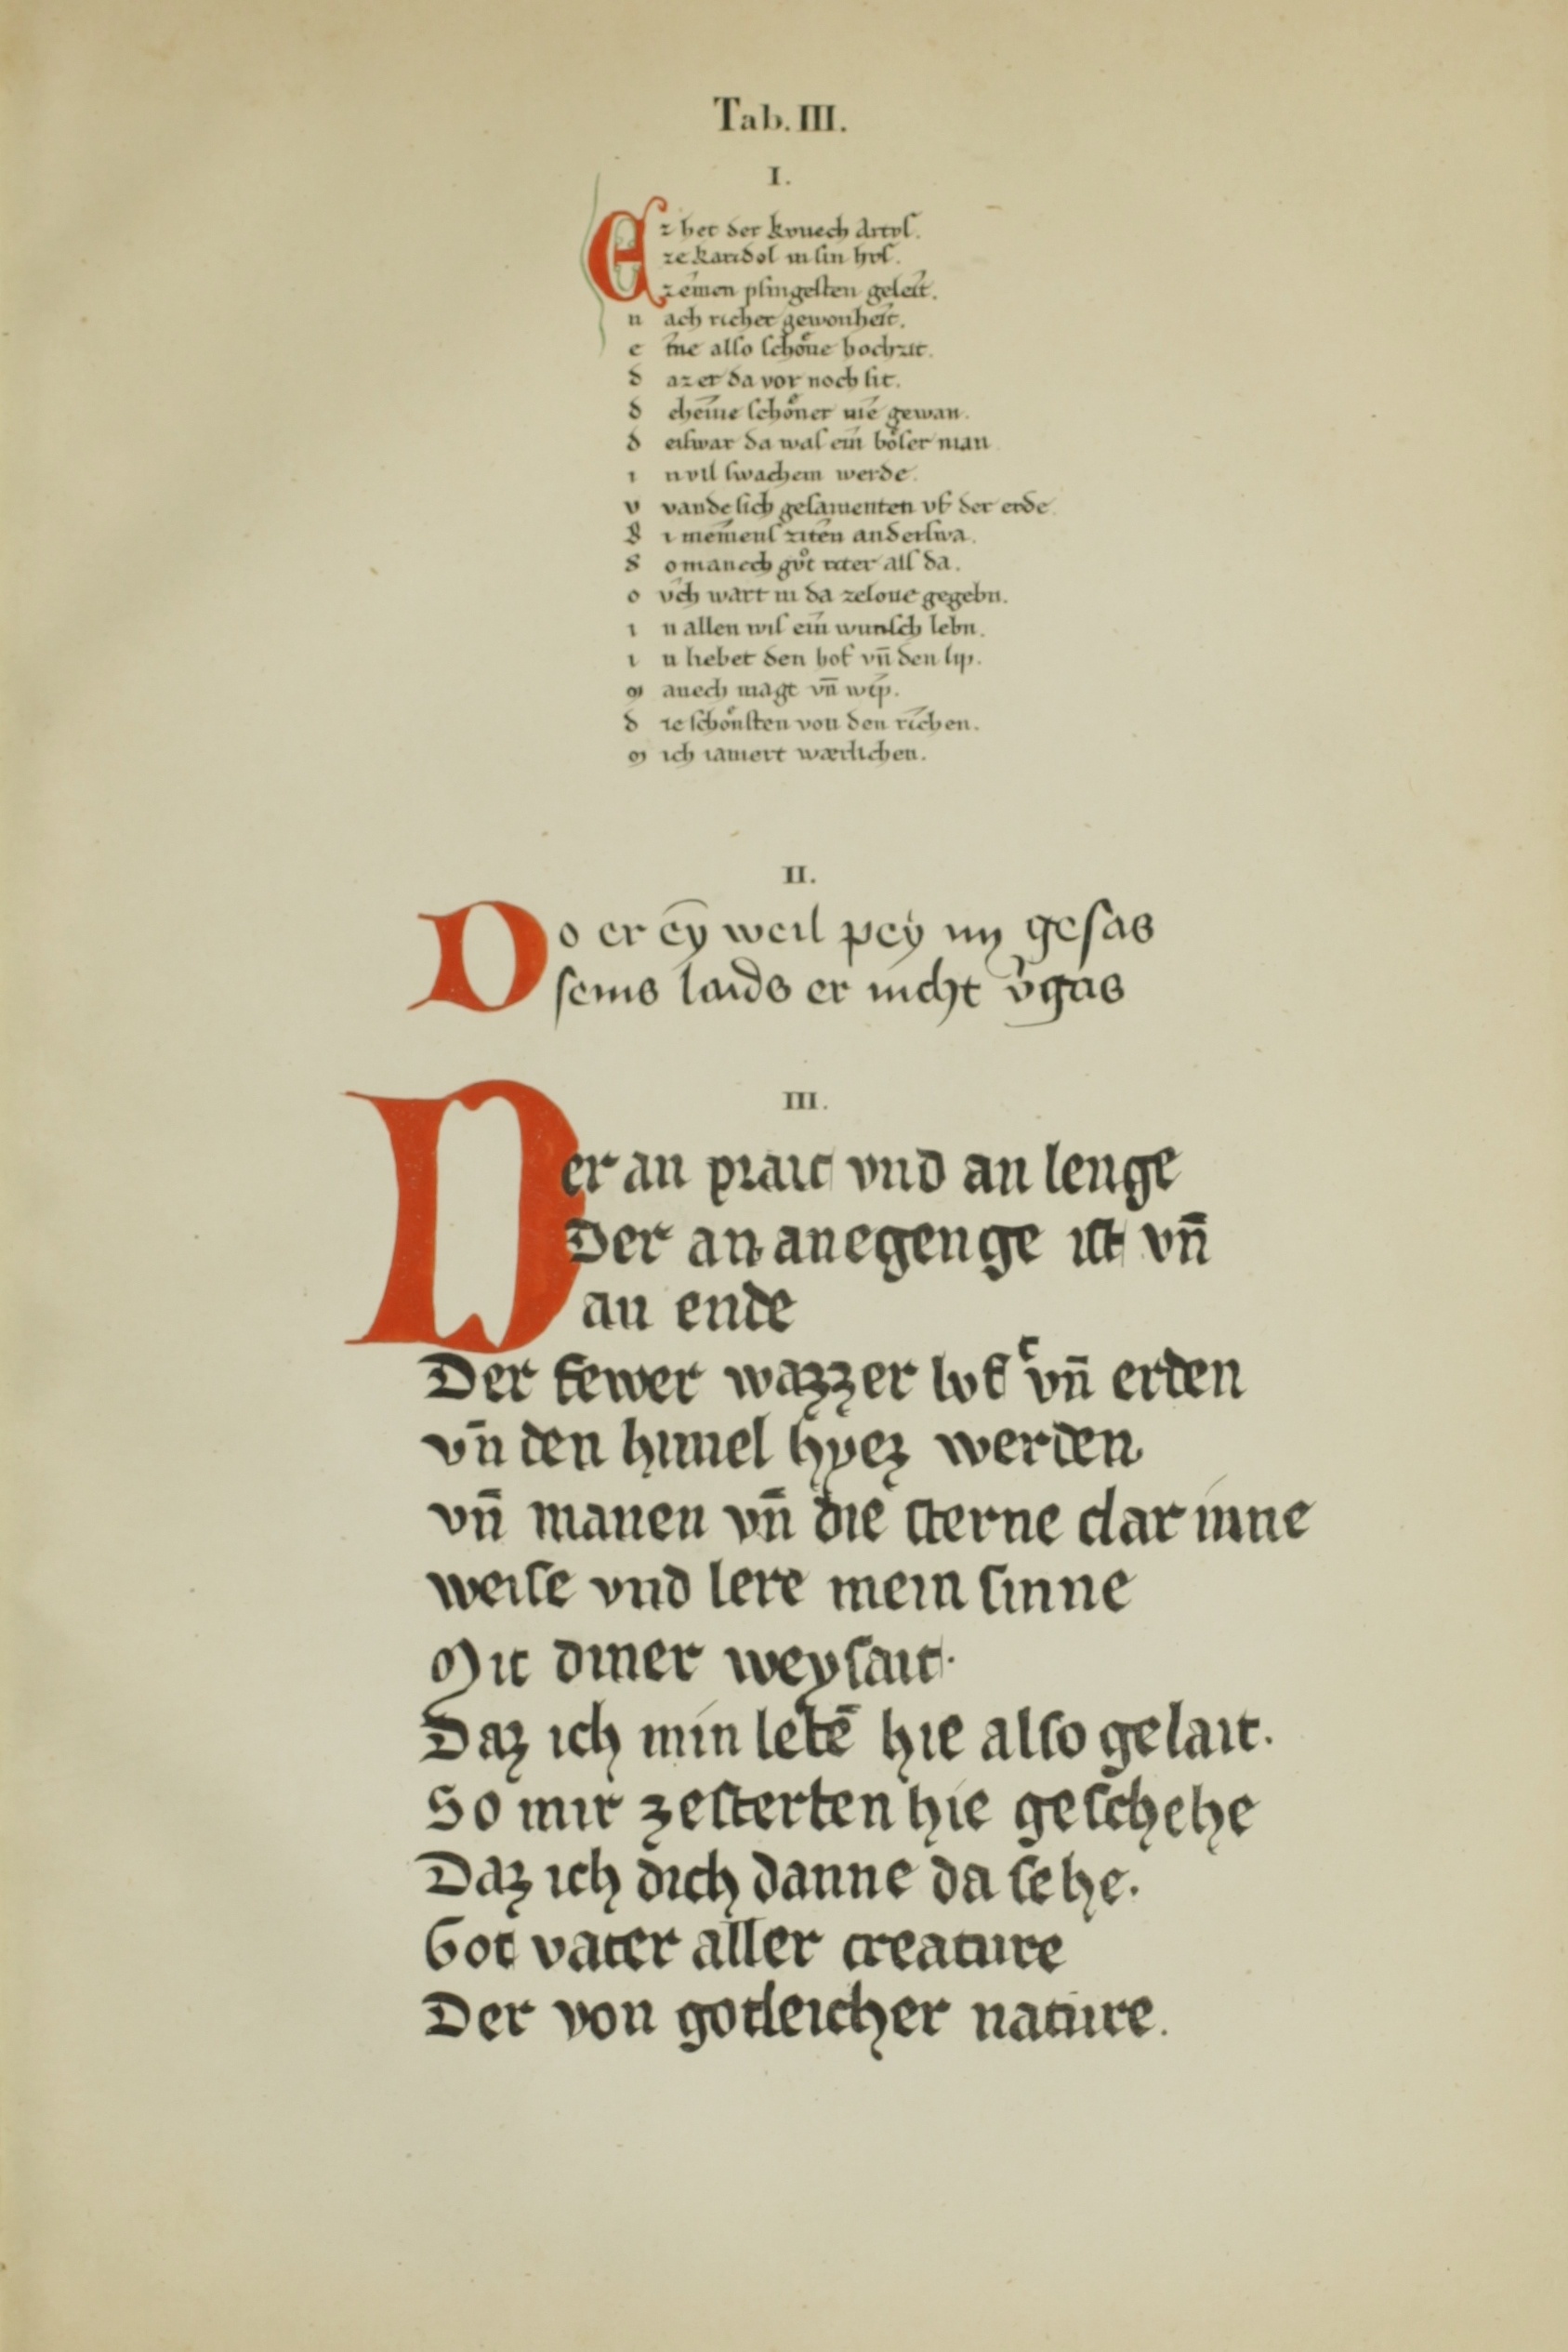 Tab. III.
I.
Ez het der kvnech Artvſ.
ze karidol in ſin hvſ.
zeinen pfingeſten geleit.
n ach richer gewonheit.
e ine alſo ſchoͤne hochzit.
d az er da vor noch ſit.
d cheine ſchoͤner nie gewan.
d eiſwar da waſ ein boͤſer man
i n vil ſwachem werde.
v vande ſich geſamenten vf der erde.
b i meinenſ ziten anderſwa.
s o manech gvͦt riter alſ da.
o vch wart in da zelone gegebn.
i n allen wiſ ein wunſch lebn.
i n liebet den hof vn̄ den lip.
m anech magt vn̄ wip.
d ie ſchoͤnſten von den richen.
m ich iamert wærlichen.
II.
Do er ey̅ weil pey im geſas
ſeins laids er nicht v̾gas
III.
Der an prait vnd an lenge
Der an anegenge iſt vn̄
an ende
Der fewer wazzer lvft vn̄ erden
vn̄ den himel hyez werden
vn̄ manen vn̄ die ſterne dar inne
weiſe vnd lere mein ſinne
Mit diner weyſait·
Daz ich min lebē hie alſo gelait.
So mir zeſterben hie geſchehe
Daz ich dich danne da ſehe.
Got vater aller creature
Der von gotleicher nature.